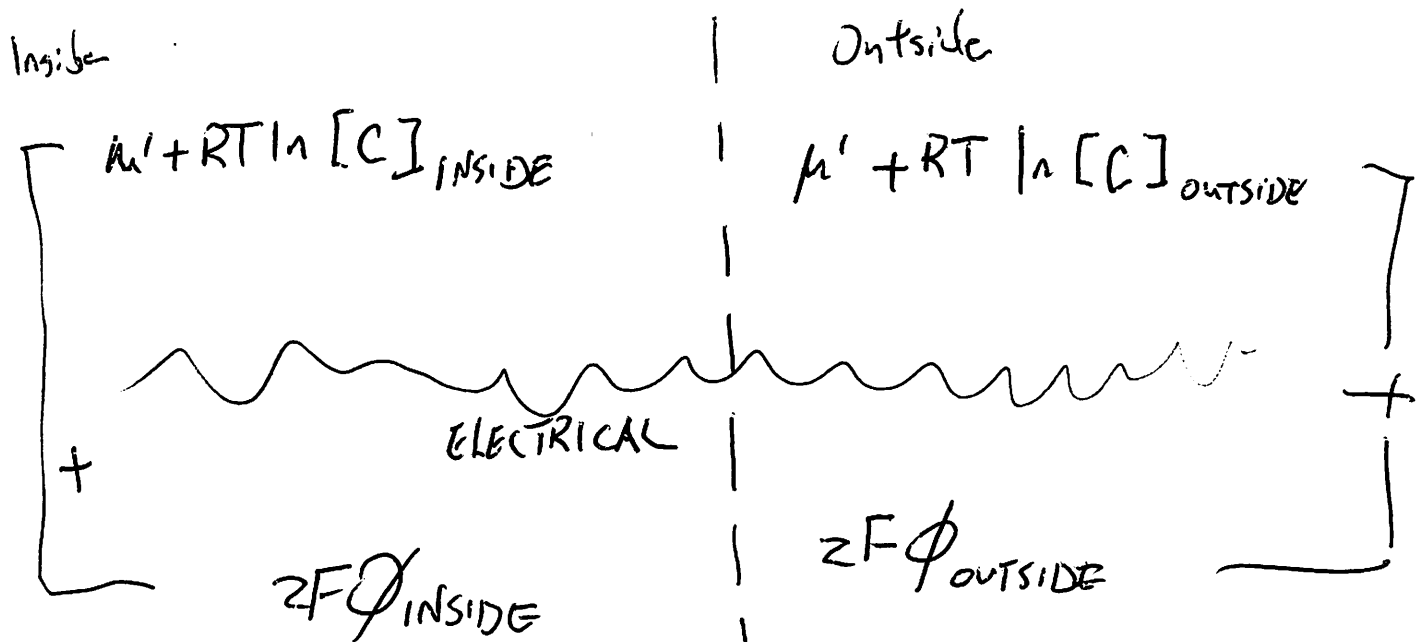 Inside
Outside
μ' + RT ln [C] INSIDE
μ' + RT ln [C] OUTSIDE
ELECTRICAL
+
+
zFϕ INSIDE
zFϕ OUTSIDE